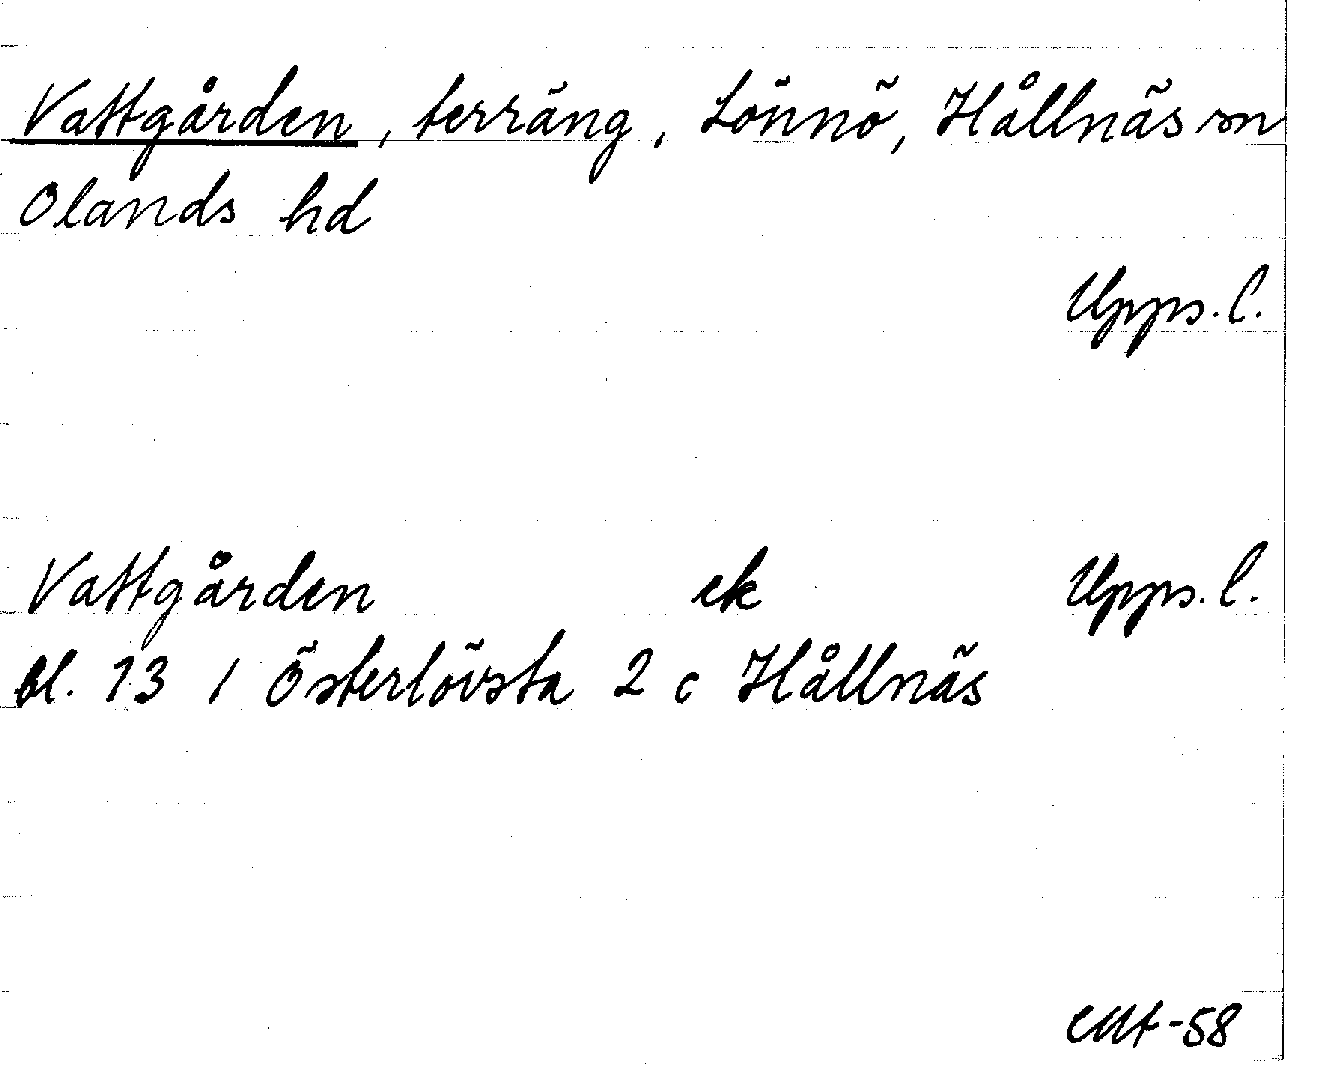 Vattgården, terräng, Lönnö, Hållnäs sn
Olands hd
Upps. l.
Vattgården ek Upps. l.
bl. 13 / Österlövsta 2 c Hållnäs